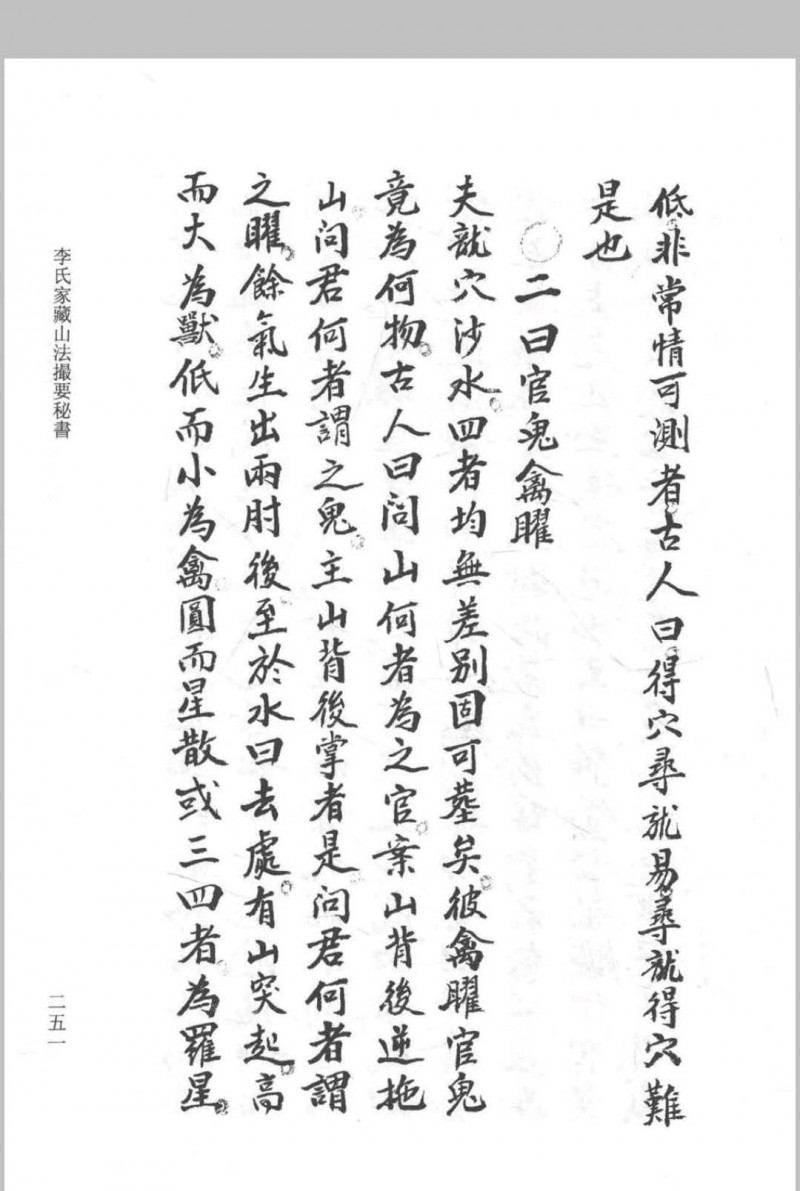 低非常情可測者古人曰得穴尋龍易尋龍得穴難
是也
二曰官鬼禽曜
夫龍穴沙水四者均無差別固可塟矣彼禽曜官鬼
竟為何物古人曰問山何者為之官案山背後逆拖
山問君何者謂之鬼主山背後掌者是問君何者謂
之曜餘氣生出兩肘後至於水曰去處有山突起高
而大為獸低而小為禽圓而星散或三四者為羅星
李氏家藏山法撮要秘書
二五一